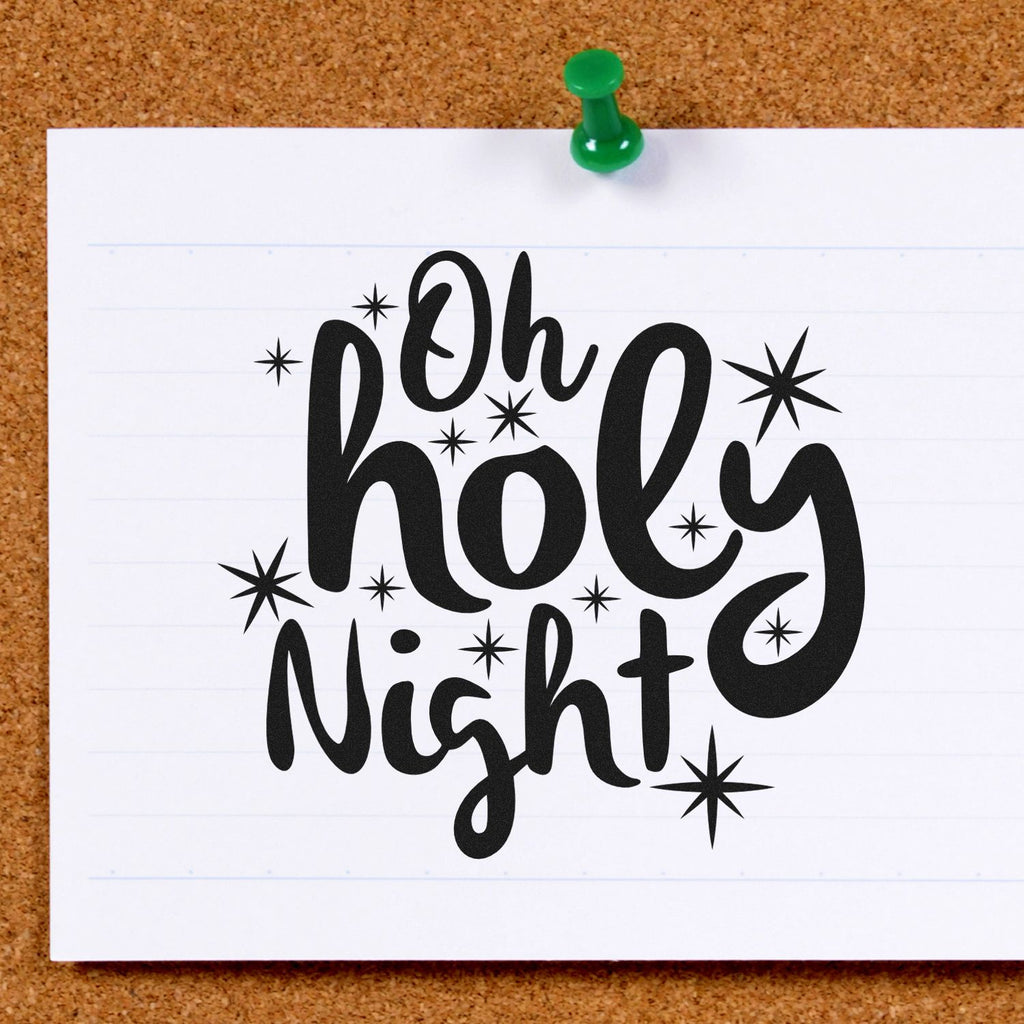 Oh
holy
Night